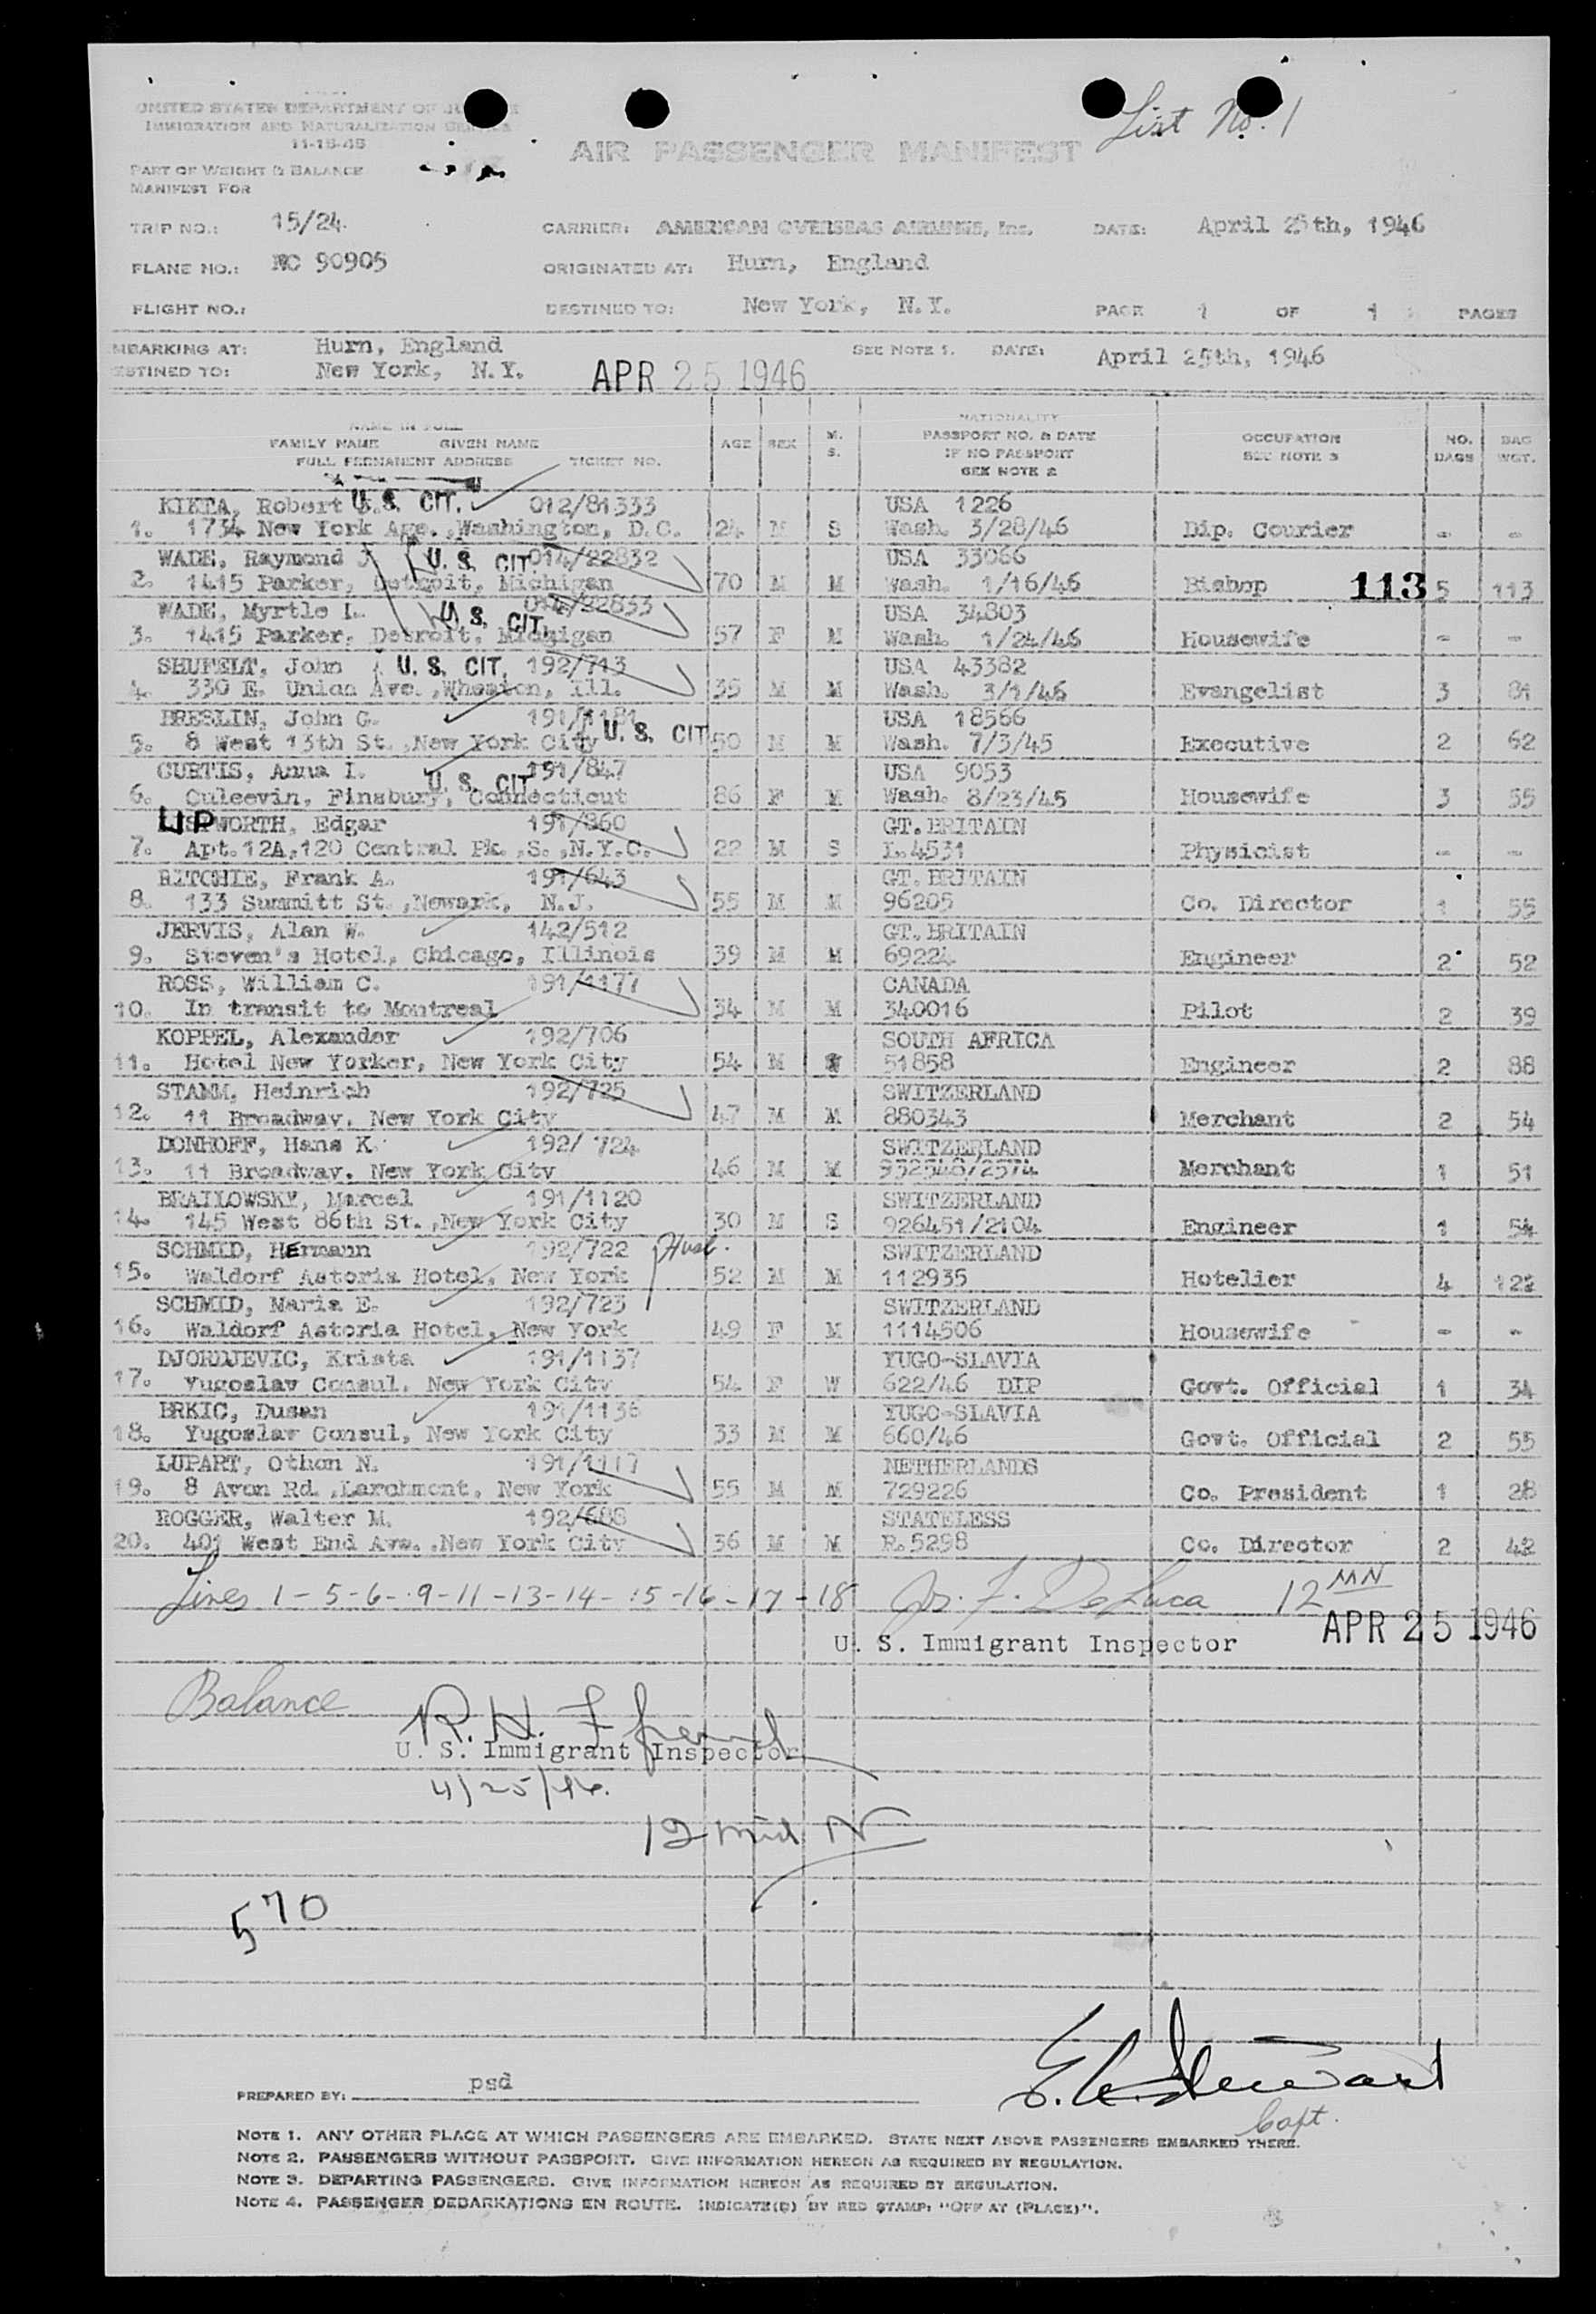 List No. 1
UNITED STATES DEPARTMENT OF JUSTICE
IMMIGRATION AND NATURALIZATION SERVICE
11-18-48
AIR PASSENGER MANIFEST
PART OF WEIGHT & BALANCE
MANIFEST FOR
TRIP NO.: 15/24. CARRIER: AMERICAN OVERSEAS AIRLINES, Inc. DATE: April 25th, 1946
PLANE NO.: NC 90905 ORIGINATED AT: Hurn, England
FLIGHT NO.: DESTINED TO: New York, N.Y. PAGE 1 OF 1 PAGES
MBARKING AT: Hurn, England SEE NOTE 1. DATE: April 25th, 1946
ESTINED TO: New York, N.Y. APR 25 1946
NAME IN FULL
FAMILY NAME GIVEN NAME
FULL PERMANENT ADDRESS TICKET NO.
AGE SEX M. S.
NATIONALITY
PASSPORT NO. & DATE
IF NO PASSPORT
SEE NOTE 2
OCCUPATION
SEE NOTE 3
NO. BAGS BAG WGT.
KIETA, Robert U.S. CIT. 012/81333 USA 1226
1. 1734 New York Ave., Washington, D.C. 24 M S Wash. 3/28/46 Dip. Courier - -
WADE, Raymond J U. S. CIT 014/22832 USA 33066
2. 1415 Parker, Detroit, Michigan 70 M M Wash. 1/16/46 Bishop 113 5 113
WADE, Myrtle L. U. S. CIT. 014/22833 USA 34803
3. 1415 Parker, Detroit, Michigan 57 F M Wash. 1/24/46 Housewife - -
SHUFELT, John U. S. CIT. 192/713 USA 43382
4. 330 E. Union Ave., Wheaton, Ill. 35 M M Wash. 3/1/46 Evangelist 3 81
BRESLIN, John G. 191/1181 U. S. CIT USA 18566
5. 8 West 13th St., New York City 50 M M Wash. 7/3/45 Executive 2 62
CURTIS, Anna I. U. S. CIT 191/847 USA 9053
6. Culeevin, Finsbury, Connecticut 86 F M Wash. 8/23/45 Housewife 3 55
LIPSWORTH, Edgar 191/860 GT. BRITAIN
7. Apt. 12A, 120 Central Pk. S., N.Y.C. 22 M S L.4531 Physicist - -
RITCHIE, Frank A. 191/643 GT. BRITAIN
8. 133 Summitt St., Newark, N.J. 55 M M 96205 Co. Director 1 55
JERVIS, Alan W. 142/512 GT. BRITAIN
9. Steven's Hotel, Chicago, Illinois 39 M M 69224 Engineer 2 52
ROSS, William C. 191/1177 CANADA
10. In transit to Montreal 34 M M 340016 Pilot 2 39
KOPPEL, Alexander 192/706 SOUTH AFRICA
11. Hotel New Yorker, New York City 54 M 51858 Engineer 2 88
STAMM, Heinrich 192/725 SWITZERLAND
12. 11 Broadway, New York City 47 M M 880343 Merchant 2 54
DONHOFF, Hans K. 192/ 724 SWITZERLAND
13. 11 Broadway, New York City 46 M M 932548/2574 Merchant 1 51
BRAILOWSKY, Marcel 191/1120 SWITZERLAND
14. 145 West 86th St., New York City 30 M S 926451/2104 Engineer 1 54
SCHMID, HErmann 192/722 Husb. SWITZERLAND
15. Waldorf Astoria Hotel, New York 52 M M 112935 Hotelier 4 122
SCHMID, Maria E. 192/723 SWITZERLAND
16. Waldorf Astoria Hotel, New York 49 F M 1114506 Housewife - -
DJORDJEVIC, Krista 191/1137 YUGO-SLAVIA
17. Yugoslav Consul, New York City 54 F W 622/46 DIP Govt. Official 1 34
BRKIC, Dusan 191/1136 YUGO-SLAVIA
18. Yugoslav Consul, New York City 33 M M 660/46 Govt. Official 2 55
LUPART, Othon N. 191/1117 NETHERLANDS
19. 8 Avon Rd., Larchmont, New York 55 M M 729226 Co. President 1 28
ROGGER, Walter M. 192/688 STATELESS
20. 401 West End Ave., New York City 36 M M R.5298 Co. Director 2 42
Lines 1-5-6-9-11-13-14-15-16-17-18 Jos. F. DeLuca 12 MN
U. S. Immigrant Inspector APR 25 1946
Balance
R. H.
U. S. Immigrant Inspector
4/25/46.
12 Mid. N
570
Stewart
Capt.
PREPARED BY: psd
NOTE 1. ANY OTHER PLACE AT WHICH PASSENGERS ARE EMBARKED. STATE NEXT ABOVE PASSENGERS EMBARKED THERE.
NOTE 2. PASSENGERS WITHOUT PASSPORT. GIVE INFORMATION HEREON AS REQUIRED BY REGULATION.
NOTE 3. DEPARTING PASSENGERS. GIVE INFORMATION HEREON AS REQUIRED BY REGULATION.
NOTE 4. PASSENGER DEBARKATIONS EN ROUTE. INDICATE(D) BY RED STAMP: "OFF AT (PLACE)".